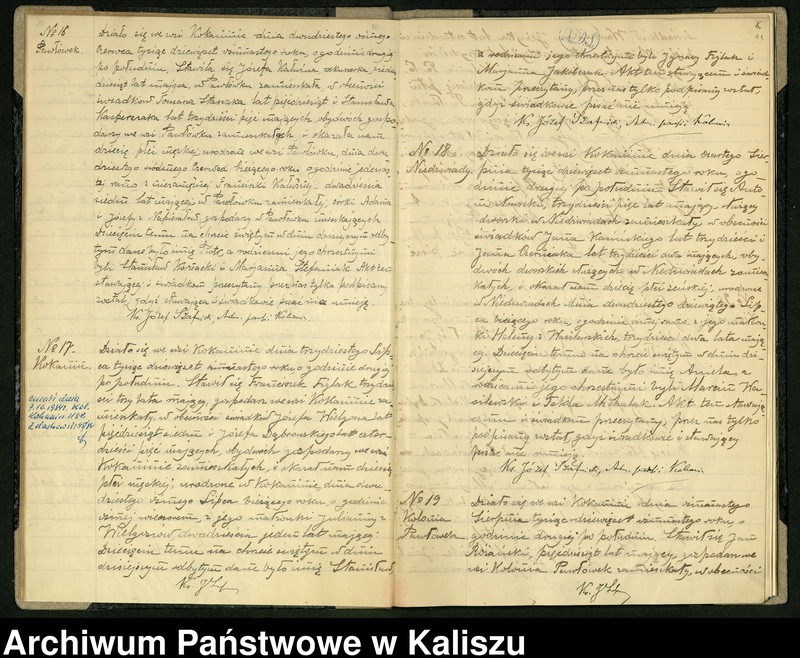 No 16
Pawłówek.
Działo się we wsi Kokaninie dnia dwudziestego ósmego
Czerwca tysiąc dziewięćset ósmnastego roku, o godzinie drugiej
po południu. Stawiła się Józefa akuszerka
lat mająca, w Pawłówku zamieszkała, w obecności
świadków Tomasza lat pięćdziesiąt i Stanisława
Kasprzaka lat trzydzieści pięć mających, obydwóch gospo-
darzy we wsi Pawłówku zamieszkałych i okazała nam
dziecię płci męskiej urodzone we wsi Pawłówku, dnia dwu-
dziestego Czerwca bieżącego roku o godzinie jedenas-
tej rano z niezamężnej dwadzieścia
siedm lat mającej w Pawłówku zamieszkałej, córki Adama
i Józefy z gospodarzy w Pawłówku
Dziecięciu temu na chrzcie świętym w dniu dzisiejszym odby-
tym dane było imię Piotr, a rodzicami jego chrzestnymi
byli Stanisław i Maryanna Stefaniak. Akt ten
stawającej i świadkom przeczytany przez nas tylko podpisany
został, gdyż stawająca i świadkowie pisać nie umieją.
Ks. Józef Szafnicki, Adm. paraf. Kokanin.
No 17.
Kokanin.
Działo się we wsi Kokaninie dnia trzydziestego Lip-
ca tysiąc dziewięćset ósmnastego roku o godzinie drugiej
po południu. Stawił się Franciszek Fiżlak trzydzie-
ści trzy lata mający, gospodarz we wsi Kokaninie za-
mieszkały, w obecności świadków Józefa lat
pięćdziesiąt siedm i Józefa Dąbrowskiego lat czter-
dzieści pięć mających, obydwóch gospodarzy we wsi
Kokaninie zamieszkałych, i okazał nam dziecię
płci męskiej urodzone w Kokaninie, dnia dwu-
dziestego ósmego Lipca bieżącego roku o godzinie
ósmej wieczorem z jego małżonki Julianny z
dwadzieścia jeden lat mającej.
Dziecięciu temu na chrzcie świętym w dniu
dzisiejszym odbytym dane było imię Stanisław,
Ks. JSz
a rodzicami jego chrzestnymi byli Ignacy Fiżlak i
Maryanna Jakóbczak. Akt ten stawającemu i świad-
kom przeczytany, przez nas tylko podpisany został,
gdyż świadkowie pisać nie umieją.
Ks. Józef Szafnicki, Adm. parafii Kokanin.
No 18.
Niedźwiady.
Działo się we wsi Kokaninie dnia czwartego Sier-
pnia tysiąc dziewięćset ósmnastego roku, o go-
dzinie drugiej po południu. Stawił się Anto-
ni Nowicki, trzydzieści pięć lat mający, służący
dworski w Niedźwiadach zamieszkały w obecności
świadków Jana Kamińskiego lat trzydzieści i
Jana lat trzydzieści dwa mających, oby-
dwóch dworskich służących w Niedźwiadach zamiesz-
kałych, i okazał nam dziecię płci żeńskiej, urodzone
w Niedźwiadach dnia dwudziestego dziewiątego Lip-
ca bieżącego roku, o godzinie rano z jego małżon-
ki Heleny z Wasilewskich, trzydzieści dwa lata mają-
cej. Dziecięciu temu na chrzcie świętym w dniu dzi-
siejszym odbytym dane było imię Aniela, a
rodzicami jego chrzestnymi byli Marcin Wa-
silewski i Tekla Michalak. Akt ten stawają-
cemu i świadkom przeczytany, przez nas tylko
podpisany został, gdyż świadkowie i stawający
pisać nie umieją.
Ks. Józef Szafnicki, Adm. parafii Kokanin.
No 19
Kolonia
Pawłówek
Działo się we wsi Kokaninie dnia ósmnastego
Sierpnia tysiąc dziewięćset ósmnastego roku, o
godzinie drugiej po południu. Stawił się Jan
pięćdziesiąt lat mający, gospodarz we
wsi Kolonia Pawłówek zamieszkały, w obecności
Ks. JSz
Archiwum Państwowe w Kaliszu